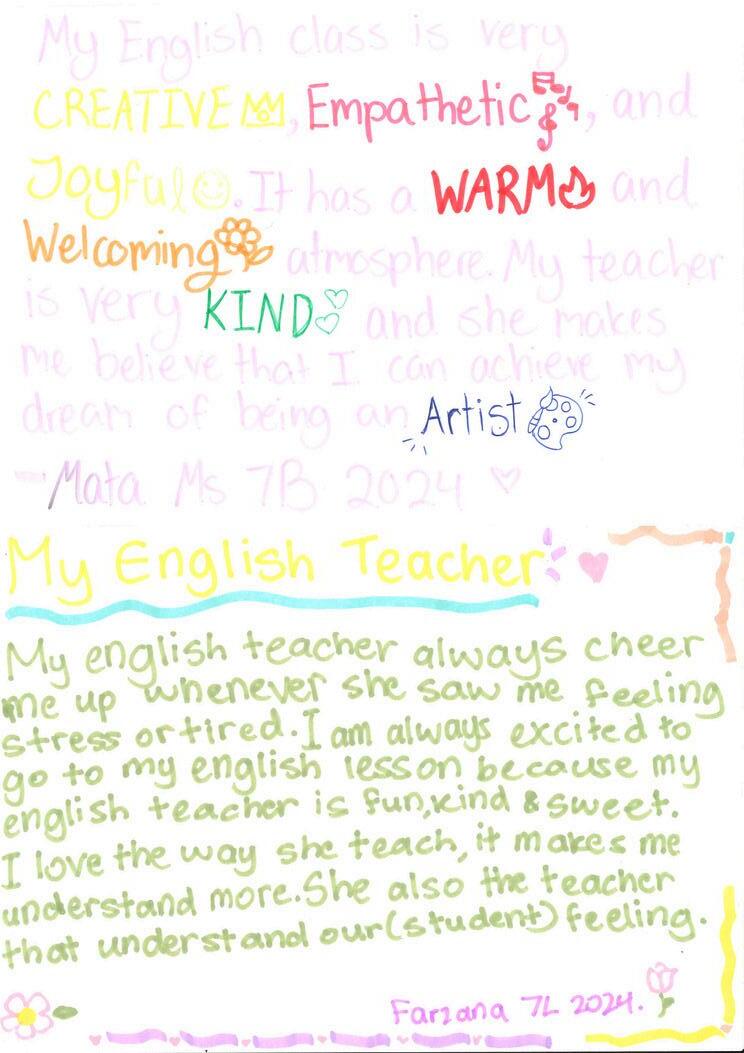 My English class is very
CREATIVE, Empathetic, and
Joyful. It has a WARM and
Welcoming atmosphere. My teacher
is very KIND and she makes
me believe that I can achieve my
dream of being an Artist
- Mata Ms 7B 2024
My English Teacher
My english teacher always cheer
me up whenever she saw me feeling
stress or tired. I am always excited to
go to my english lesson because my
english teacher is fun, kind & sweet.
I love the way she teach, it makes me
understand more. She also the teacher
that understand our (student) feeling.
Farzana 7L 2024.